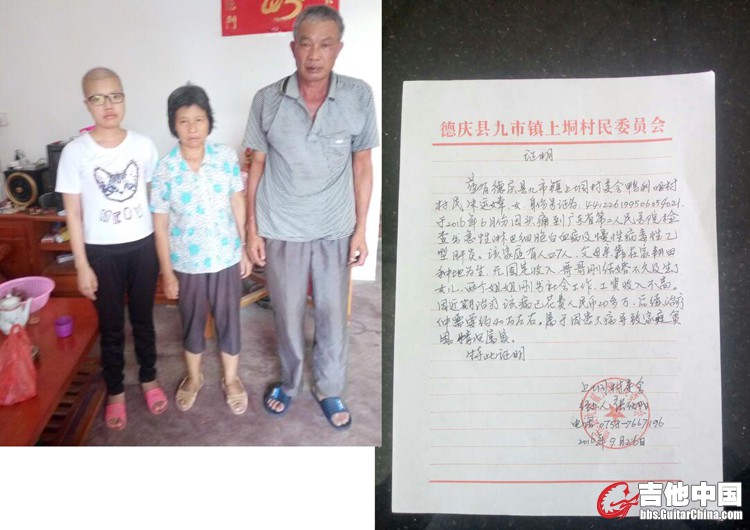 德庆县九市镇上垌村民委员会
证明
兹有德庆县九市镇上垌村委会鸭
村民
女
身份号证为
于2016年6月份因头痛到广东省第二人民医院检
查出急性淋巴细胞白血病及慢性病毒性乙
型肝炎。该家庭有人口7人，父母亲靠在家耕田
种地为生，无固定收入，哥哥刚结婚不久及生了
女儿，两个姐姐刚出社会工作，工资收入不高。
因近期治疗该病已花费人民币20多万，后续治疗
仲需要约40万左右。属于因患大病导致家庭贫
困，情况属实。
特此证明
上垌村委会
电话：0758-7667196
2016年9月26日
吉他中国
bbs.GuitarChina.com